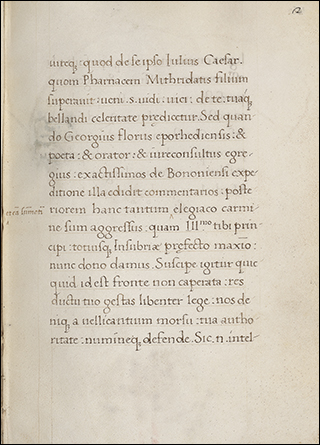 12
uireq; : quod de se ipso Iulius Caesar .
quom Pharnacem Mithridatis filium
superauit : ueni . s . uidi : uici : de te : tuaq́;
bellandi celeritate predicetur . Sed quan-
do Georgius florus eporhediensis : &
poeta : & orator : & iureconsultus egre-
gius : exactissimos de Bononiensi expe-
ditione illa edidit commentarios : poste-
riorem hanc tantum elegiaco carmi-
ne sum aggressus . quam Illmo tibi prin-
cipi : totiusq; Insubriæ prefecto maxio :
nunc dono damus . Suscipe igitur quic
quid id est fronte non caperata : res
ductu tuo gestas libenter lege : nos de-
niq; a uellicantium morsu : tua autho-
ritate : numineq; defende . Sic . n . intel-